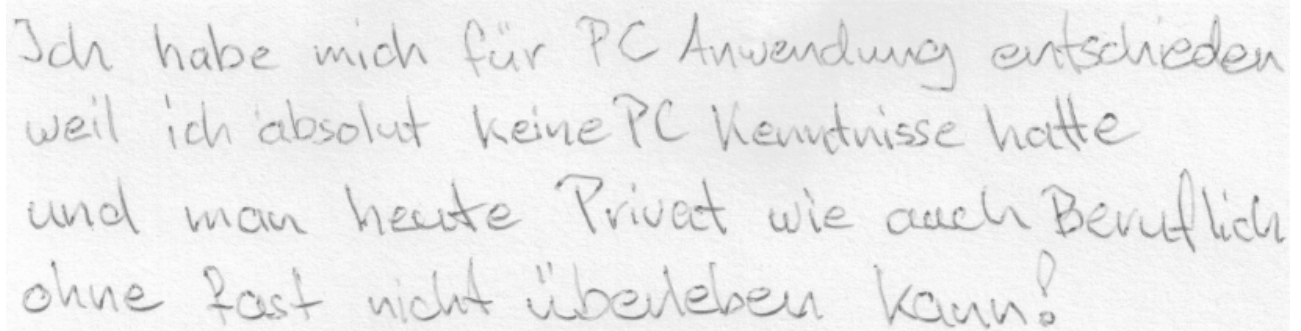 Ich habe mich für PC Anwendung entschieden
weil ich absolut keine PC Kenntnisse hatte
und man heute Privat wie auch Beruflich
ohne fast nicht überleben kann!